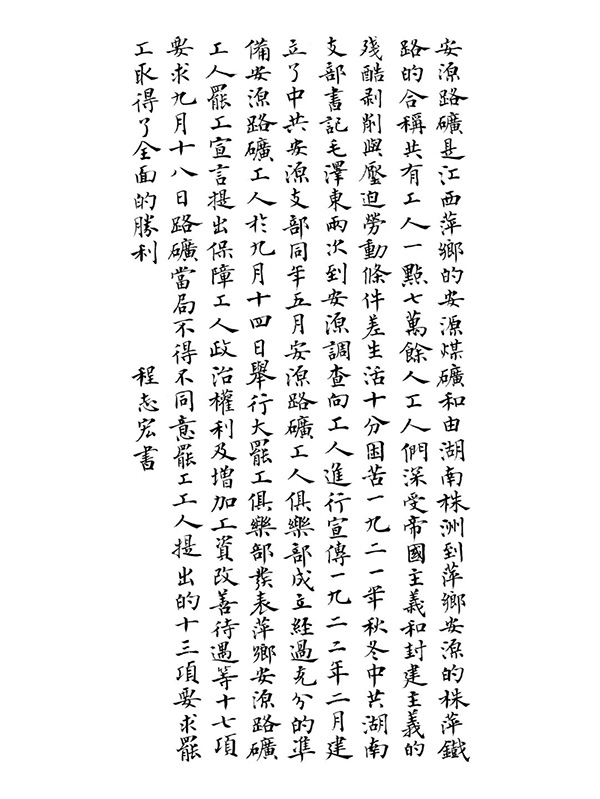 安源路礦是江西萍鄉的安源煤礦和由湖南株洲到萍鄉安源的株萍鐵
路的合稱共有工人一點七萬餘人工人們深受帝國主義和封建主義的
殘酷剥削與壓迫勞動條件差生活十分困苦一九二一年秋冬中共湖南
支部書記毛澤東兩次到安源調查向工人進行宣傳一九二二年二月建
立了中共安源支部同年五月安源路礦工人俱樂部成立經過充分的準
備安源路礦工人於九月十四日舉行大罷工俱樂部發表萍鄉安源路礦
工人罷工宣言提出保障工人政治權利及增加工資改善待遇等十七項
要求九月十八日路礦當局不得不同意罷工工人提出的十三項要求罷
工取得了全面的勝利
程志宏書